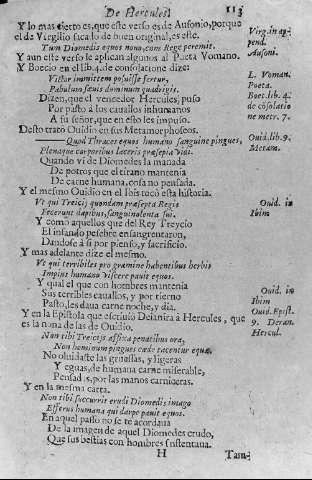 De Hercules. 113
Y lo mas cierto es, que este verso es de Ausonio, porque
el de Virgilio sacalo de buen original, es este.
Virg. in ap
pend.
Ausoni.
Tum Diomedis equos nono, cum Rege peremit.
Y aun este verso le aplican algunos al Poeta Vomano.
Y Boecio en el lib. 4. de consolatione dize:
L. Voman.
Poeta.
Boet. lib. 4.
de cōsolatio
ne metr. 7.
Victor immitem posuisse fertur,
Pabulum sæuis dominum quadrigis.
Dizen, que el vencedor Hercules, puso
Por pasto à los cauallos inhumanos
A su señor, que en esto les impuso.
Desto tratò Ouidio en sus Metamorphoseos.
Quid Thraces equos humano sanguine pingues,
Plenaque corporibus laceris præsepia vidi.
Ouid. lib. 9.
Metam.
Quando vi de Diomedes la manada
De potros que el tirano mantenia
De carne humana, cosa no pensada.
Y el mesmo Ouidio en el Ibis tocò esta historia.
Ouid. in
Ibim
Vt qui Treicij quondam præsepia Regis
Fecerunt dapibus, sanguinolenta sui.
Y como aquellos que del Rey Treycio
El infando pesebre ensangrentaron,
Dandose à si por pienso, y sacrificio.
Y mas adelante dize el mesmo.
Vt qui terribiles pro gramine habentibus herbis
Impius humano viscere pauit equos.
Y qual el que con hombres mantenia
Sus terribles cauallos, y por tierno
Pasto, les daua carne noche, y dia.
Ouid. in
Ibim
Y en la Epistola que escriuiò Deianira à Hercules, que
es la nona de las de Ouidio.
Ouid. Epist.
9. Deian.
Hercul.
Non tibi Treicijs affixa penatibus ora,
Non hominum pingues cæde tacentur equæ.
No oluidaste las gruessas, y ligeras
Yeguas, de humana carne miserable,
Pensadas, por las manos carniceras.
Y en la mesma carta.
Non tibi succurrit crudi Diomedis imago
Efferus humana qui dape pauit equos.
En aquel passo no se te acordaua
De la imagen de aquel Diomedes crudo,
Que sus bestias con hombres sustentaua.
H